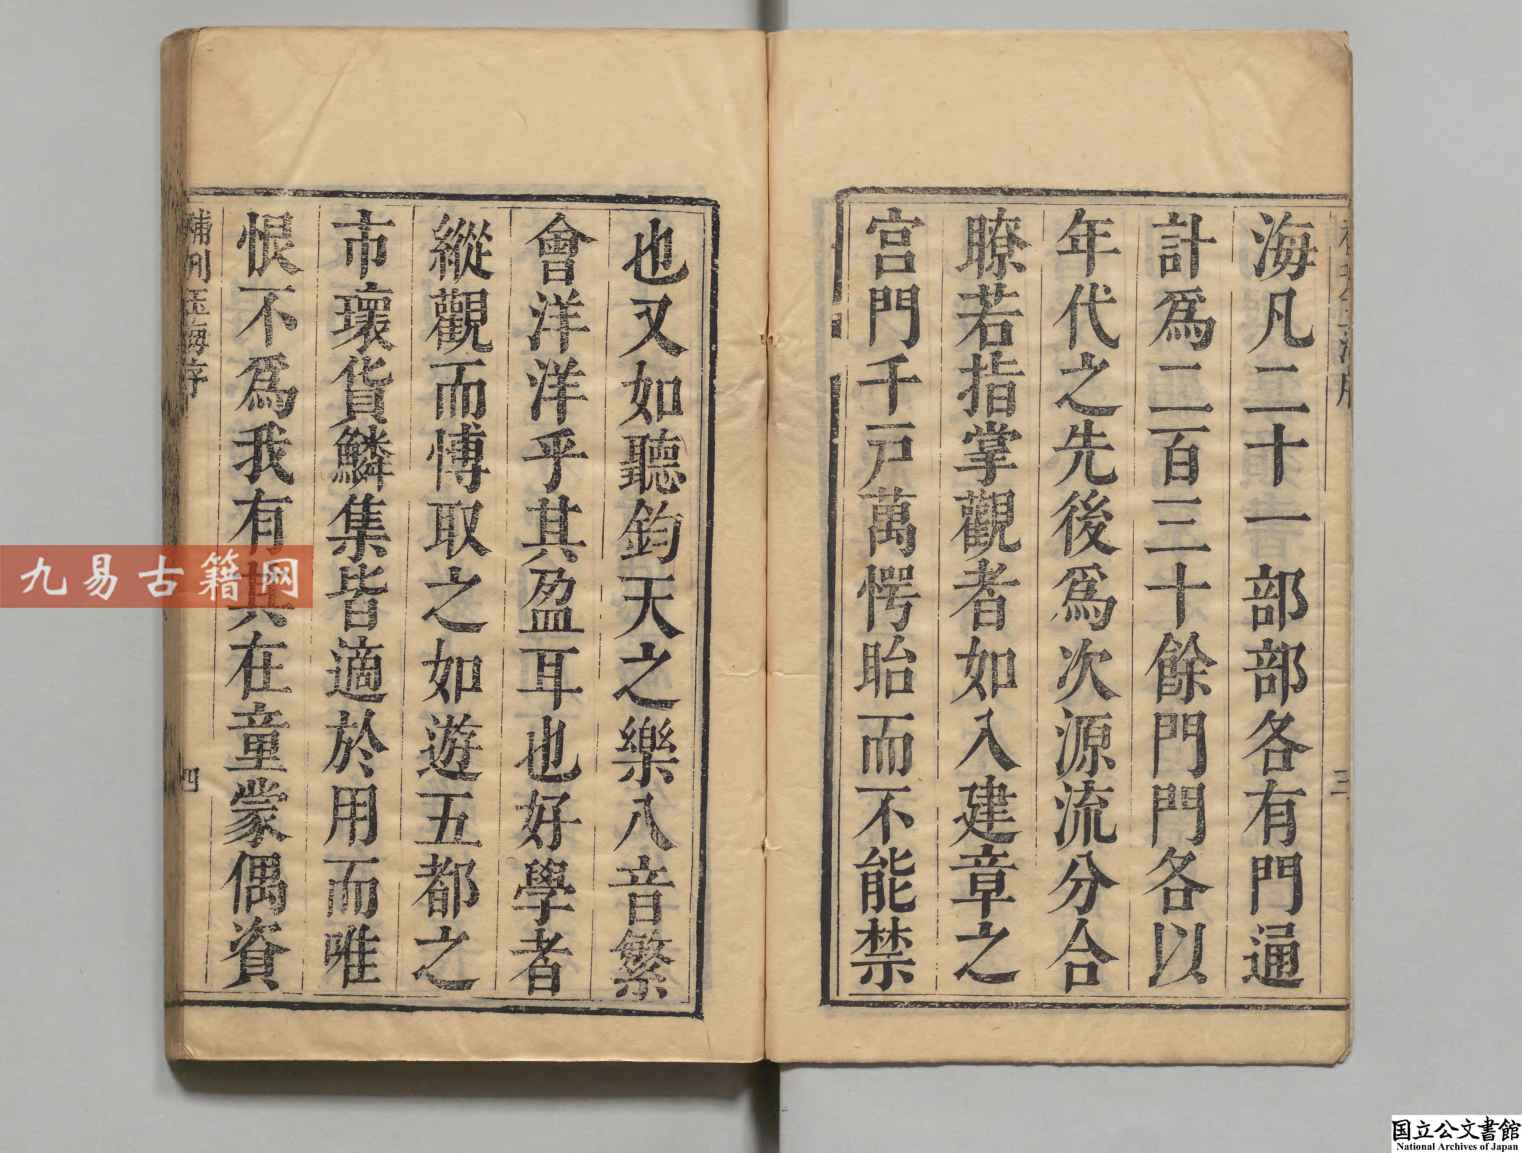 海凡二十一部部各有門通
計爲二百三十餘門門各以
年代之先後爲次源流分合
瞭若指掌觀者如入建章之
宮門千戸萬愕眙而不能禁
也又如聽鈞天之樂八音繁
會洋洋乎其盈耳也好學者
縱觀而博取之如遊五都之
市壞貨鱗集皆適於用而唯
恨不爲我有其在童蒙偶資
補刊玉海序
四
三
九易古籍网
国立公文書館
National Archives of Japan